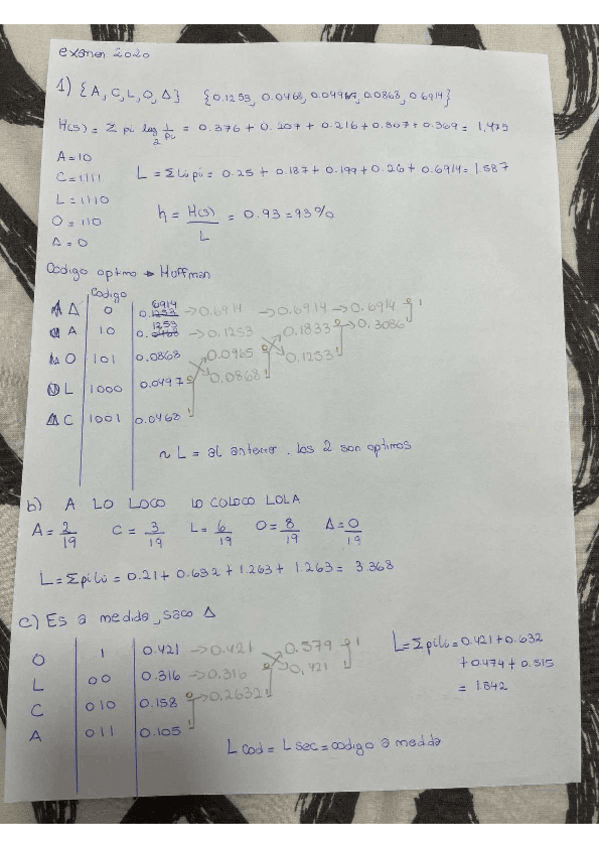 examen 2020
1) {A, C, L, O, Δ} {0.1253, 0.0468, 0.0497, 0.0868, 0.6914}
H(s) = Σ pi log₂ 1/pi = 0.376 + 0.207 + 0.216 + 0.307 + 0.369 = 1.475
A = 10
C = 1111 L = Σ li pi = 0.25 + 0.187 + 0.199 + 0.26 + 0.6914 = 1.587
L = 1110
O = 110 h = H(s)/L = 0.93 = 93%
Δ = 0
Codigo optimo → Huffman
Codigo
Δ 0 0.6914 → 0.6914 → 0.6914 → 0.6914 1
A 10 0.1253 → 0.1253 0.1833 0 → 0.3086
O 101 0.0868 0.0965 0 0.1253 1
L 1000 0.0497 0 0.0868 1
C 1001 0.0468 1
~ L = al anterior. los 2 son optimos
b) A LO LOCO LO COLOCO LOLA
A = 2/19 C = 3/19 L = 6/19 O = 8/19 Δ = 0/19
L = Σ pi li = 0.21 + 0.632 + 1.263 + 1.263 = 3.368
c) Es a medida, saco Δ
O 1 0.421 → 0.421 0.579 0 L = Σ pi li = 0.421 + 0.632
L 00 0.316 → 0.316 0 0.421 1 + 0.474 + 0.315
C 010 0.158 0 → 0.2632 1 = 1.842
A 011 0.105 1
L cod = L sec = codigo a medida